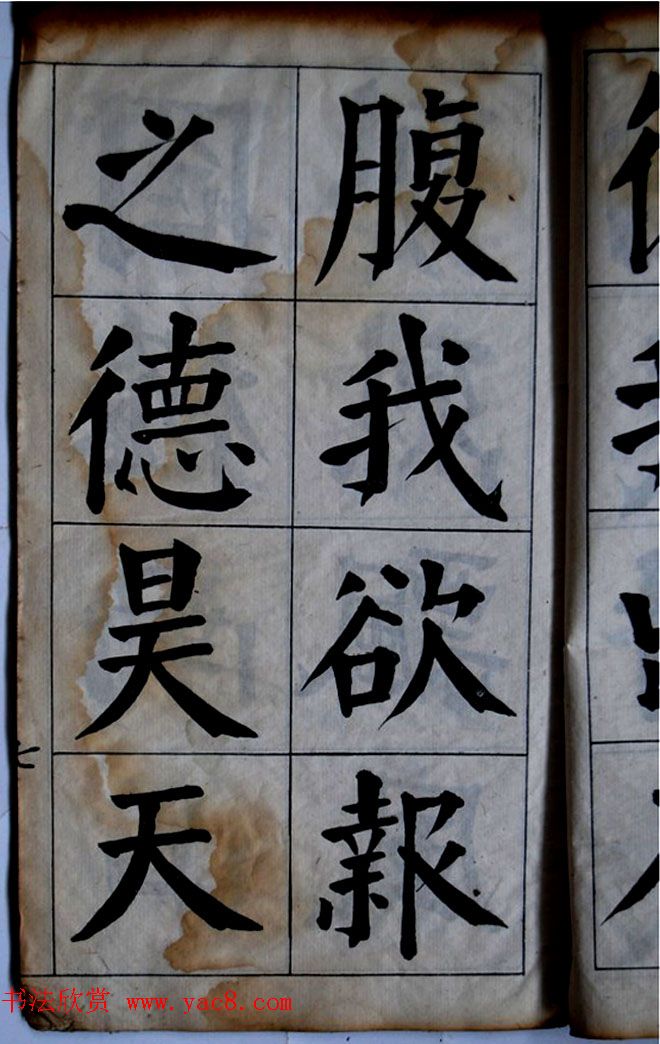 腹我欲報
之德昊天
七
书法欣赏 www.yac8.com